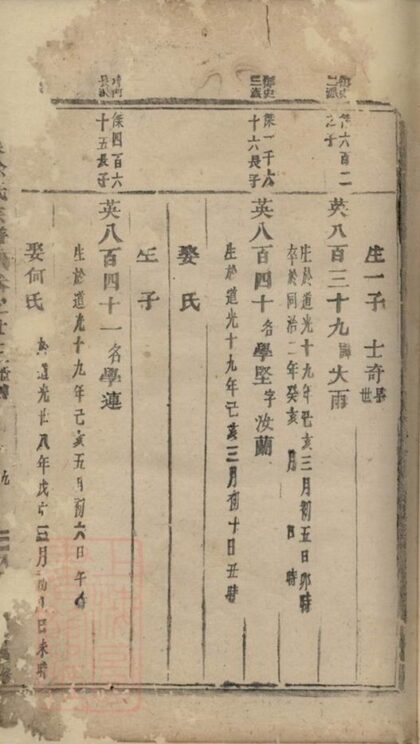 生一子 士奇
英八百三十九 大雨
生於道光十九年己亥三月初五日卯時
卒於同治二年癸亥 月 日 時
御史
三派
傑一千六
十六長子
英八百四十名學堅字汝蘭
生於道光十九年己亥三月初十日丑時
娶 氏
生 子
傑四百六
十五長子
英八百四十一名學連
生於道光十九年己亥五月初六日午時
娶何氏
於道光廿八年戊 三月 日未時
九